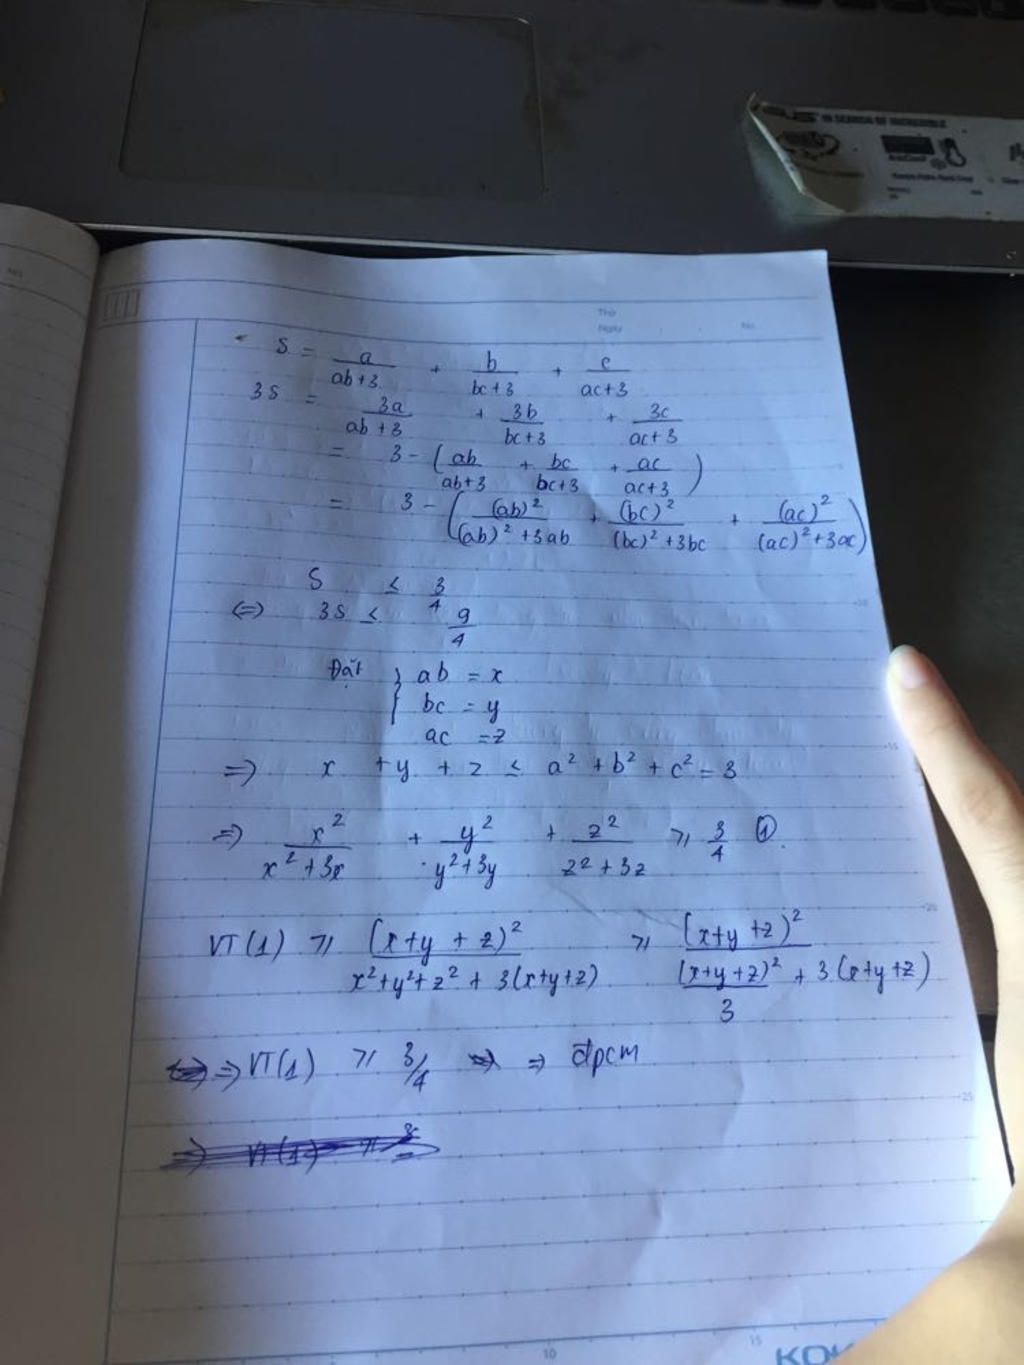 IN SEARCH OF INCREDIBLE
Thứ
Ngày No.
S = a/(ab+3) + b/(bc+3) + c/(ac+3)
3S = 3a/(ab+3) + 3b/(bc+3) + 3c/(ac+3)
= 3 - (ab/(ab+3) + bc/(bc+3) + ac/(ac+3))
= 3 - ((ab)²/((ab)²+3ab) + (bc)²/((bc)²+3bc) + (ac)²/((ac)²+3ac))
S ≤ 3/4
⇔ 3S ≤ 9/4
Đặt { ab = x
bc = y
ac = z
⇒ x + y + z ≤ a² + b² + c² = 3
⇒ x²/(x²+3x) + y²/(y²+3y) + z²/(z²+3z) ⩾ 3/4 ①.
VT(1) ⩾ (x+y+z)²/(x²+y²+z² + 3(x+y+z)) ⩾ (x+y+z)²/((x+y+z)²/3 + 3(x+y+z))
⇒ VT(1) ⩾ 3/4 ⇒ đpcm
⇒ VT(1) ⩾ 3
10 15 20 25
10 15